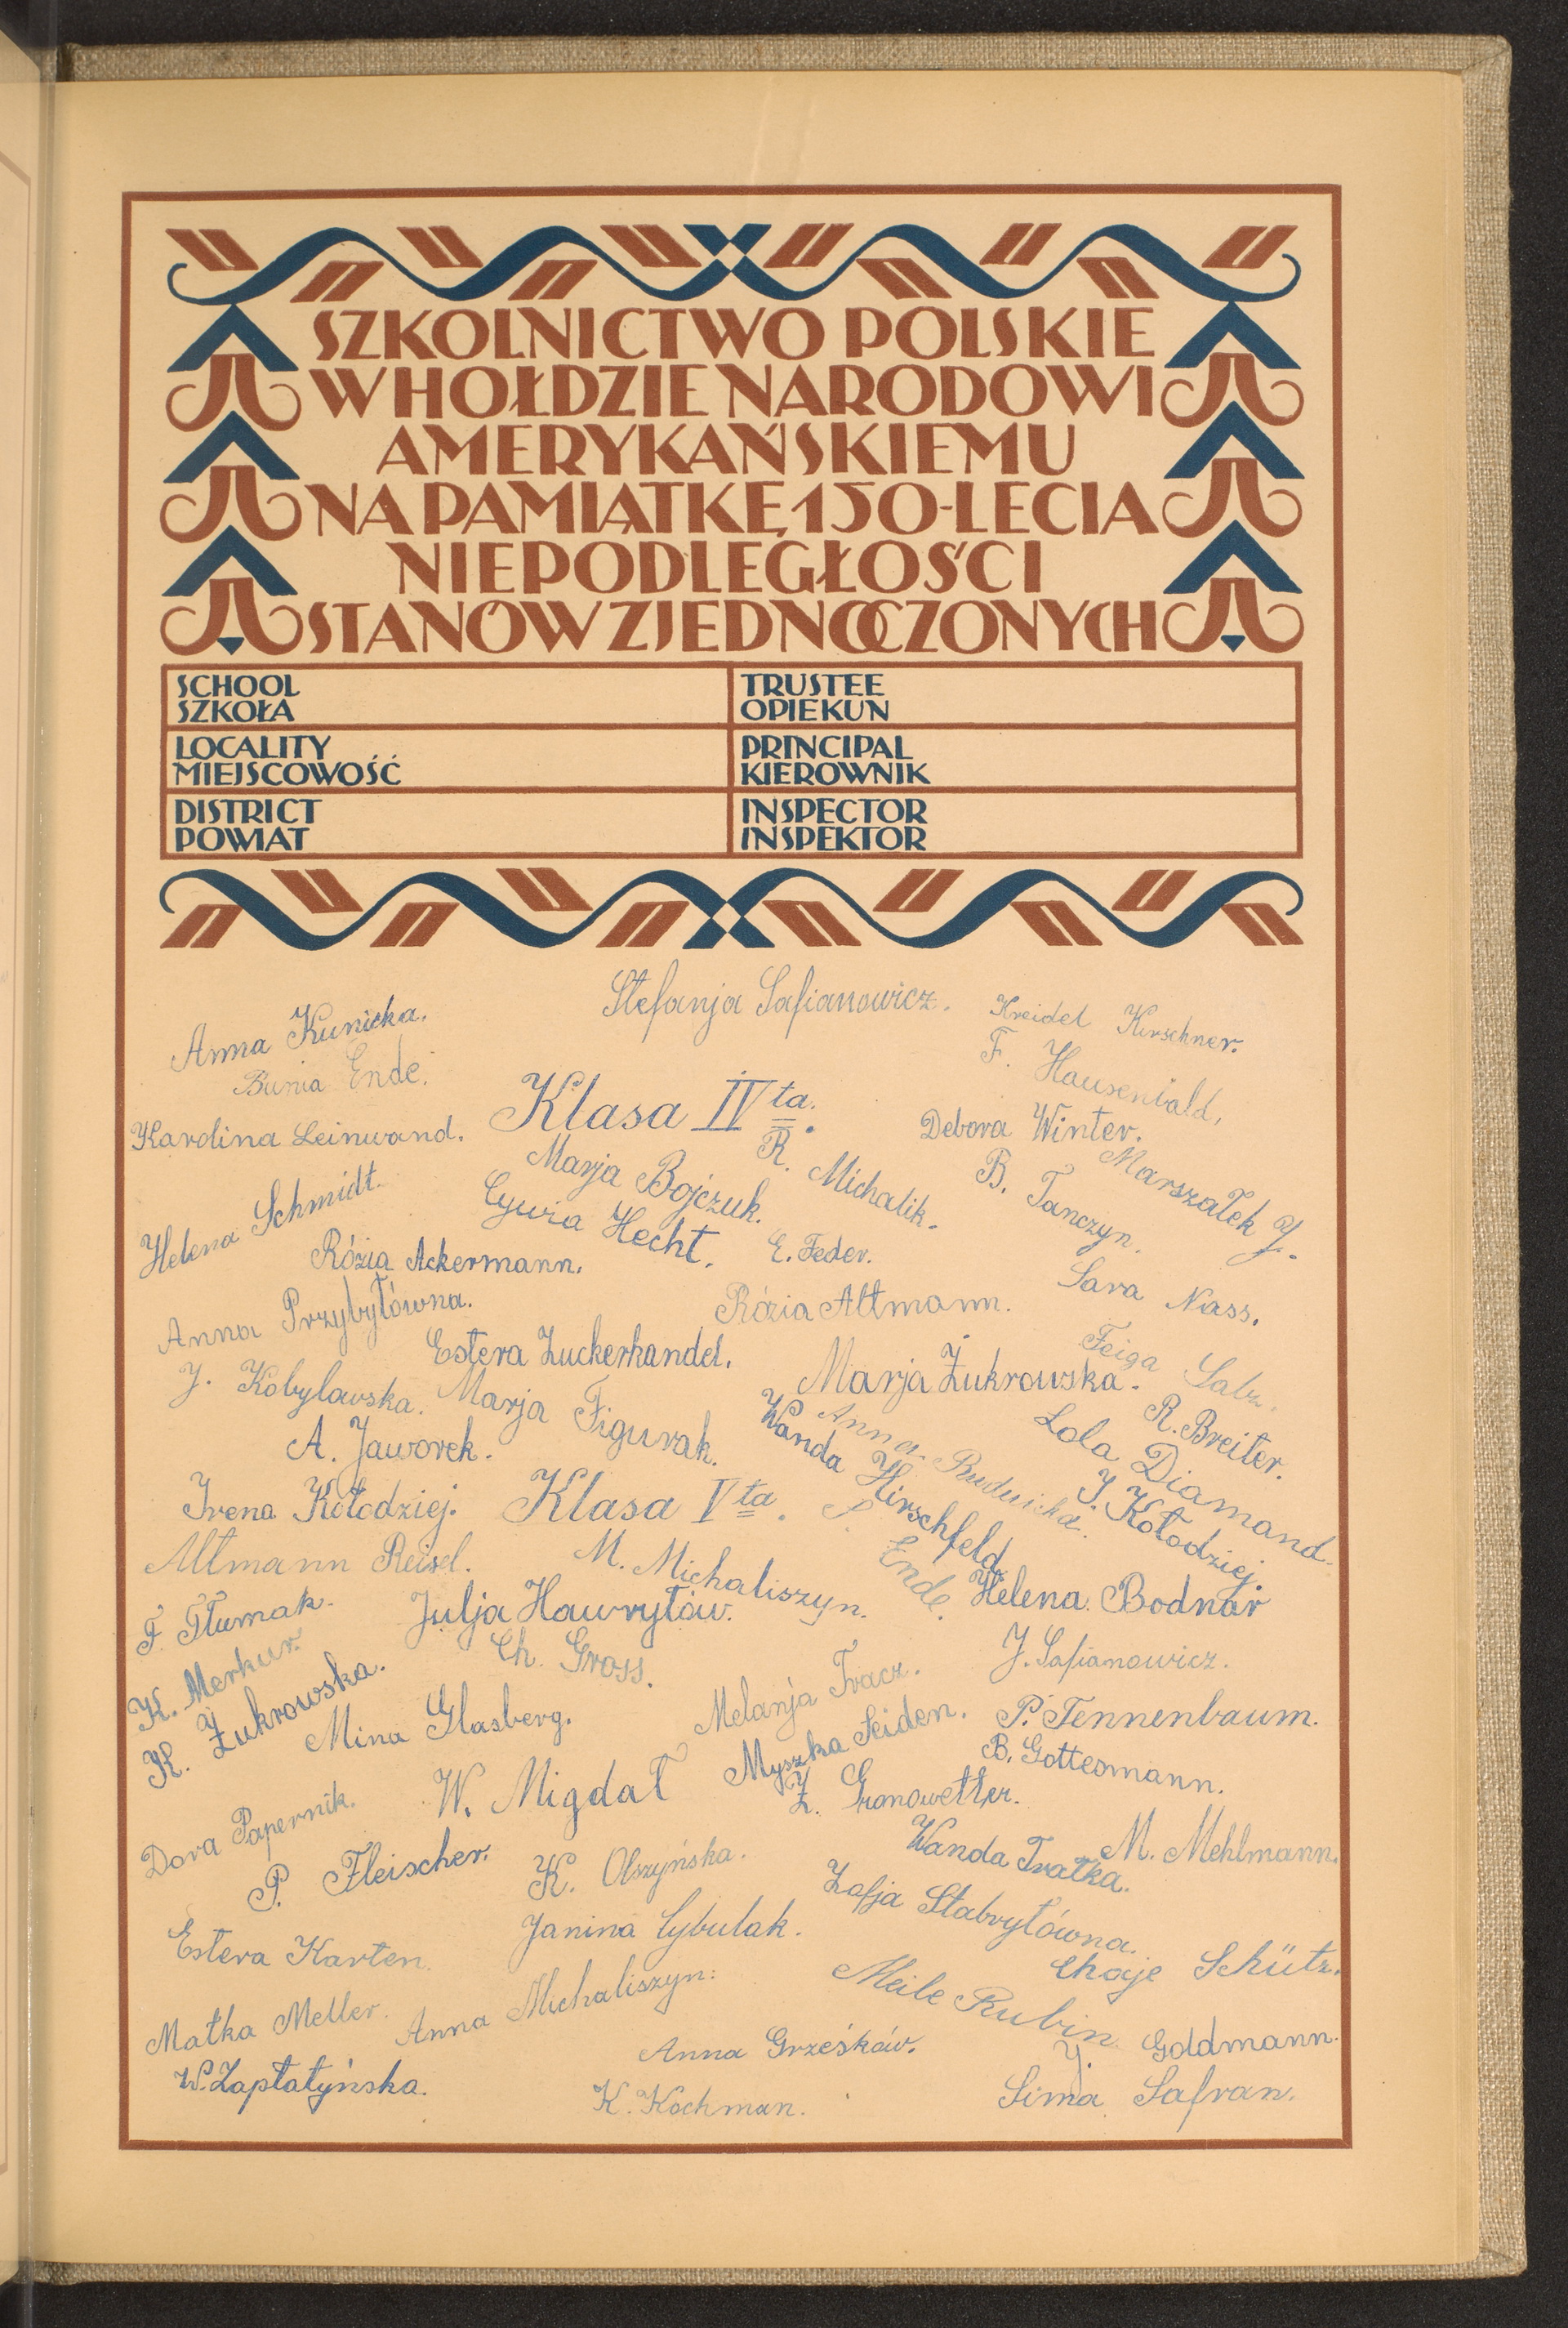 SZKOLNICTWO POLSKIE
W HOŁDZIE NARODOWI
AMERYKAŃSKIEMU
NA PAMIĄTKĘ 150-LECIA
NIEPODLEGŁOŚCI
STANÓW ZJEDNOCZONYCH
SCHOOL
SZKOŁA
TRUSTEE
OPIEKUN
LOCALITY
MIEJSCOWOŚĆ
PRINCIPAL
KIEROWNIK
DISTRICT
POWIAT
INSPECTOR
INSPEKTOR
Stefanja Safianowicz.
Anna Kunicka.
Kreidel Kirschner.
Bunia Ende.
F. Hausenbald,
Klasa IV ta.
Karolina Leinwand.
Debora Winter.
R. Michalik.
Marszałek J.
Marja Bojczuk.
B. Tanczyn.
Helena Schmidt.
Cywia Hecht.
E. Feder.
Rózia Ackermann.
Sara Nass.
Anna Przybyłówna.
Rózia Altmann.
Estera Zuckerkandel.
Feiga Salz.
Marja Żukrowska.
J. Kobylawska.
Marja Figurak.
R. Breiter.
A. Jaworek.
Anna Rudnicka.
Wanda Hirschfeld.
Lola Diamand.
J. Kołodziej.
Irena Kołodziej.
Klasa V ta.
S. Ende.
Altmann Reisel.
M. Michaliszyn.
Helena Bodnar
F. Tłumak.
Julja Hawryłów.
K. Merkur.
Ch. Gross.
J. Safianowicz.
K. Żukrowska.
Mina Glasberg.
Melanja Tracz.
P. Tennenbaum.
Myszka Seiden.
B. Gottesmann.
W. Migdał
Z. Granowetter.
Dora Papernik.
Wanda Tratka.
M. Mehlmann.
P. Fleischer.
K. Olszyńska.
Zofja Stabryłówna.
Janina Cybulak.
Estera Karten.
Chaje Schütz.
Meile Rubin.
Anna Michaliszyn.
Matka Meller.
J. Goldmann.
Anna Grześków.
W. Zapłatyńska.
K. Kochman.
Sima Safran.